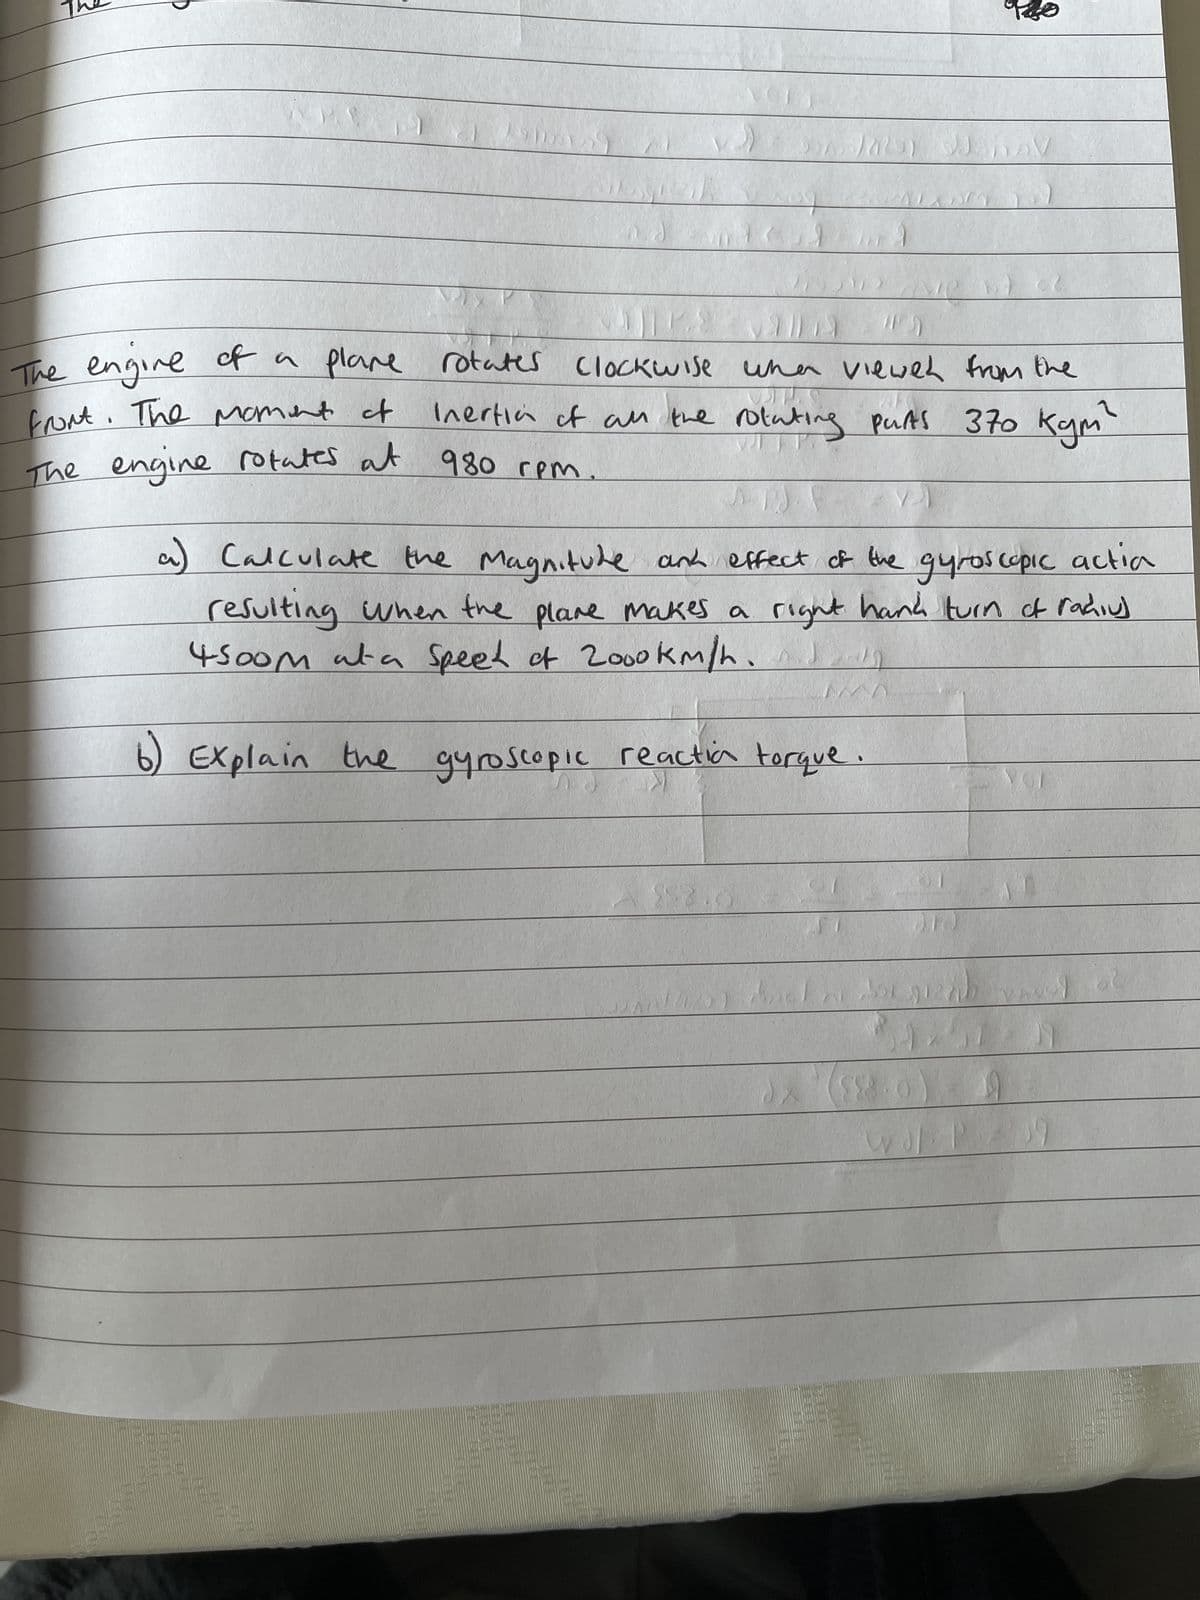 The
980
The engine of a plane rotates clockwise when viewed from the
front. The moment of Inertia of all the rotating parts 370 Kgm²
The engine rotates at 980 rpm.
a) Calculate the Magnitude and effect of the gyroscopic action
resulting when the plane makes a right hand turn of radius
4500m at a speed of 2000km/h.
b) Explain the gyroscopic reaction torque.